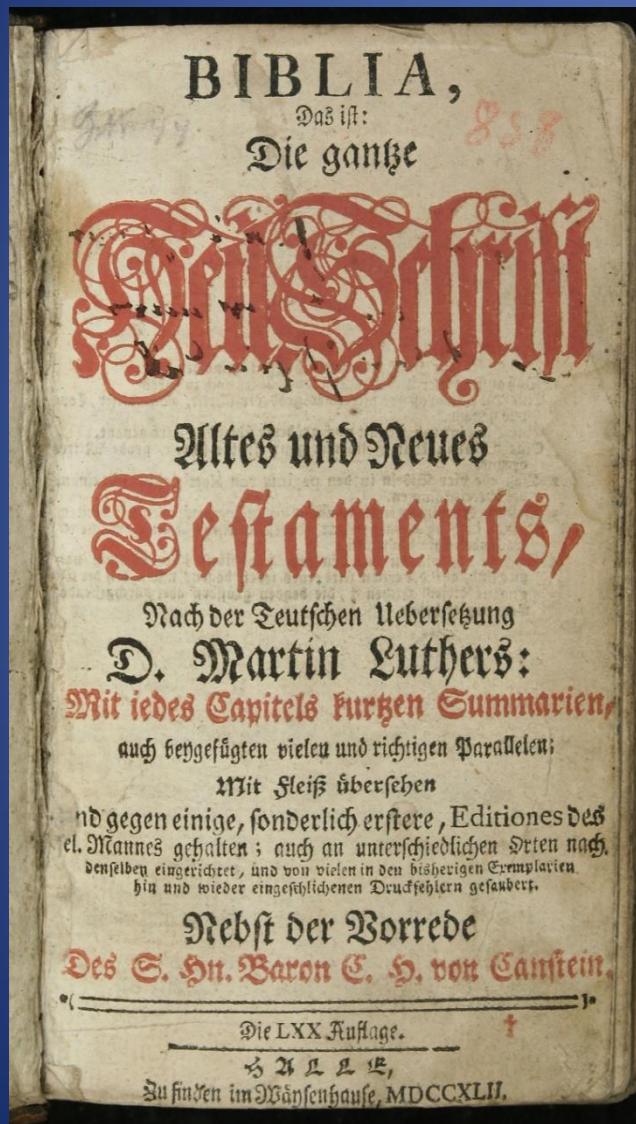 BIBLIA,
Das ist:
Die gantze
Heil. Schrift
Altes und Neues
Testaments,
Nach der Teutschen Uebersetzung
D. Martin Luthers:
Mit iedes Capitels kurtzen Summarien,
auch beygefügten vielen und richtigen Parallelen;
Mit Fleiß übersehen
nd gegen einige, sonderlich erstere, Editiones des
el. Mannes gehalten; auch an unterschiedlichen Orten nach
denselben eingerichtet, und von vielen in den bisherigen Exemplarien
hin und wieder eingeschlichenen Druckfehlern gesaubert.
Nebst der Vorrede
Des S. Hn. Baron C. H. von Canstein.
Die LXX Auflage.
HALLE,
Zu finden im Wäysenhause, MDCCXLII.
858